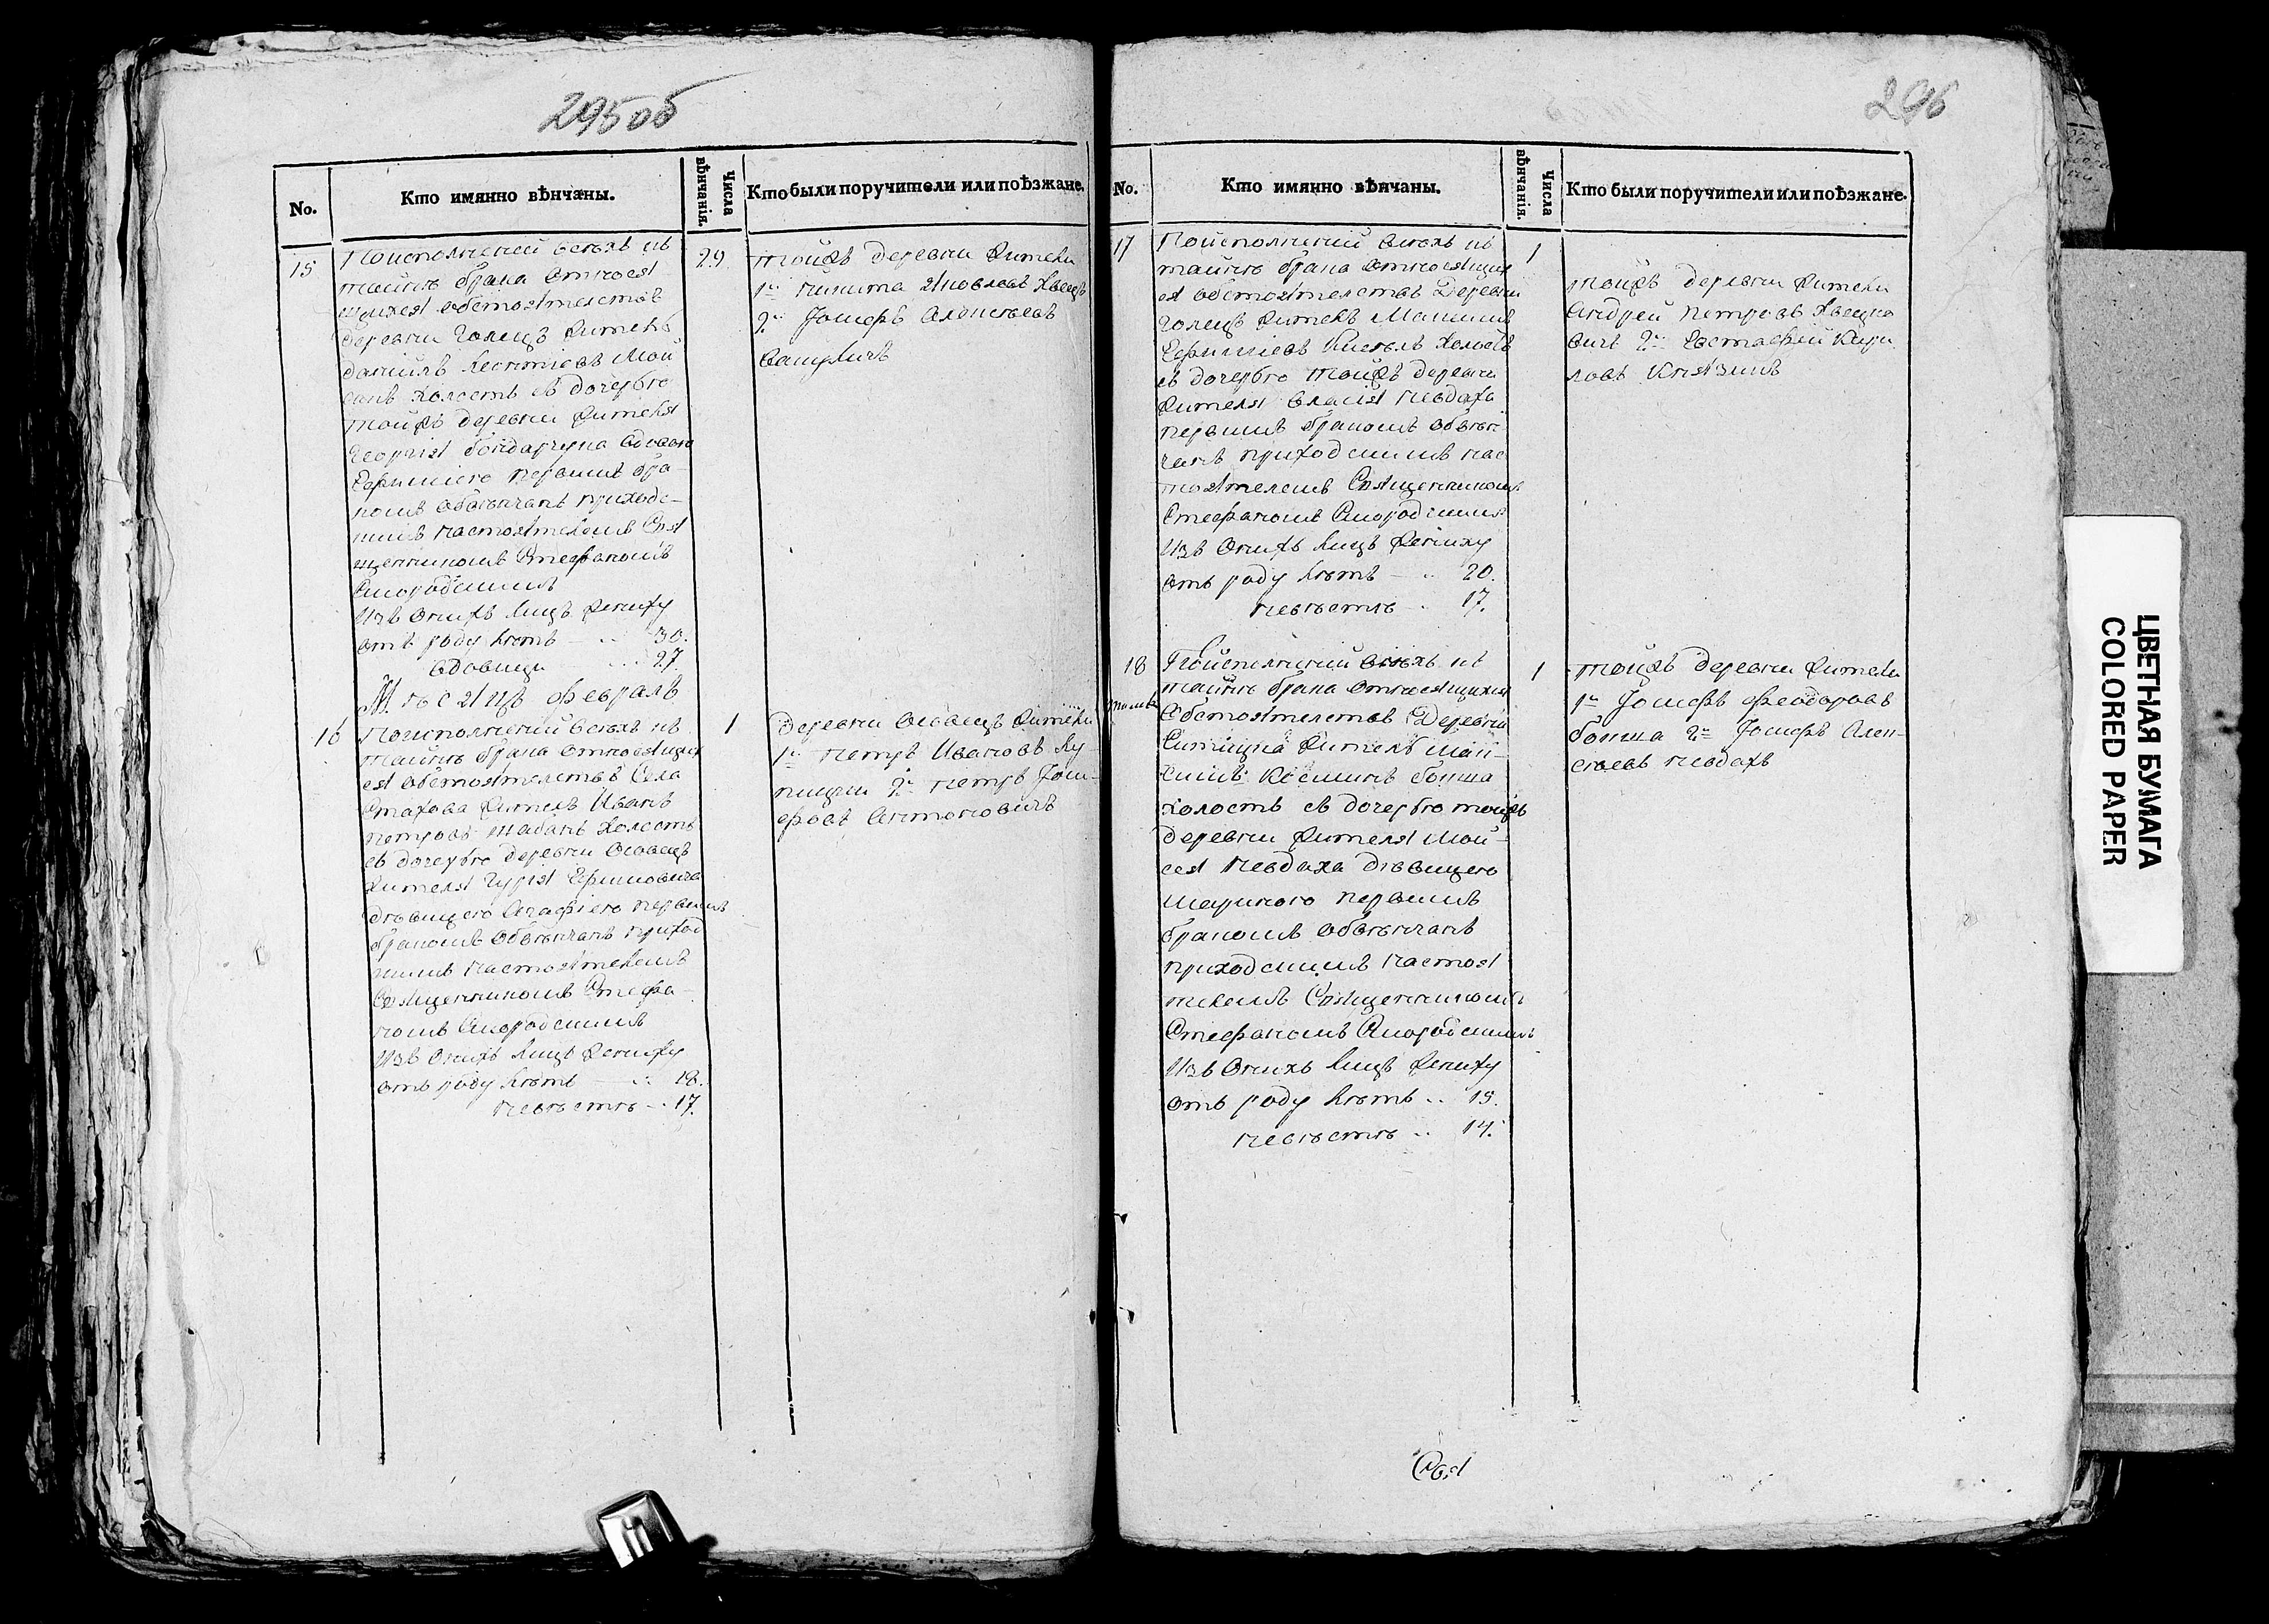 295 об
No.
Кто имянно вѣнчаны.
Числа вѣнчанія.
Кто были поручители или поѣзжане.
15
Поисполнений всѣхъ къ
тайнѣ брака относя
щихся обстоятелствъ
деревни Голецъ житель
Даніилъ Леонтіевъ Мой
санъ холостъ съ дочерью
тойжъ деревни жителя
Георгія Бондарчука вдовою
Ефиміею первымъ бра-
комъ обвѣнчанъ приход-
скимъ настоятелемъ Свя
щенникомъ Стефаномъ
Смородскимъ
Изъ оныхъ лицъ жениху
отъ роду лѣтъ — .. 30.
вдовици ... 27.
29.
тойжъ деревни жители
1й Никита Яковлевъ
2й Іосифъ
Мѣсяцъ Февраль
16
Поисполнений всѣхъ къ
тайнѣ брака относящих
ся обстоятелствъ Села
Стахова житель Иванъ
Петровъ Шабанъ холостъ
съ дочерью деревни Осовецъ
жителя Гурія Ефимовича
дѣвицею Агафіею первымъ
бракомъ обвѣнчанъ приход
скимъ настоятелемъ
Священникомъ Стефа-
номъ Смородскимъ
Изъ оныхъ лицъ жениху
отъ роду лѣтъ — .. 18.
невѣстѣ .. 17.
1
деревни Осовецъ жители
1й Петръ Ивановъ
2й Петръ Іоси-
фовъ Антоновичъ
296
No.
Кто имянно вѣнчаны.
Числа вѣнчанія.
Кто были поручители или поѣзжане.
17
Поисполнений всѣхъ къ
тайнѣ брака относящих
ся обстоятелствъ Деревни
Голецъ житель Максимъ
Ефиміевъ Киселъ холостъ
съ дочерью тойжъ деревни
жителя Власія Невдаха
первымъ бракомъ обвѣн-
чанъ приходскимъ нас
тоятелемъ Священникомъ
Стефаномъ Смородскимъ
Изъ оныхъ лицъ жениху
отъ роду лѣтъ — .. 20.
невѣстѣ . 17.
1
тойжъ деревни жители
Андрей Петровъ Хвецко
вичъ 2й Евстафій Кири
ловъ Князикъ
18
Поисполнений всѣхъ къ
тайнѣ брака относящихся
обстоятелствъ Деревни
житель Мак-
симъ Косминъ Ботша
холостъ съ дочерью тойжъ
деревни жителя Мой-
сея Невдаха дѣвицею
Мариною первымъ
бракомъ обвѣнчанъ
приходскимъ настоя
телемъ Священникомъ
Стефаномъ Смородскимъ
Изъ оныхъ лицъ жениху
отъ роду лѣтъ .. 19.
невѣстѣ .. 17.
1
тойжъ деревни жители
1й Іосифъ Феодоровъ
Ботша 2й Іосифъ Алек-
сѣевъ Невдахъ
Свя
ЦВЕТНАЯ БУМАГА
COLORED PAPER